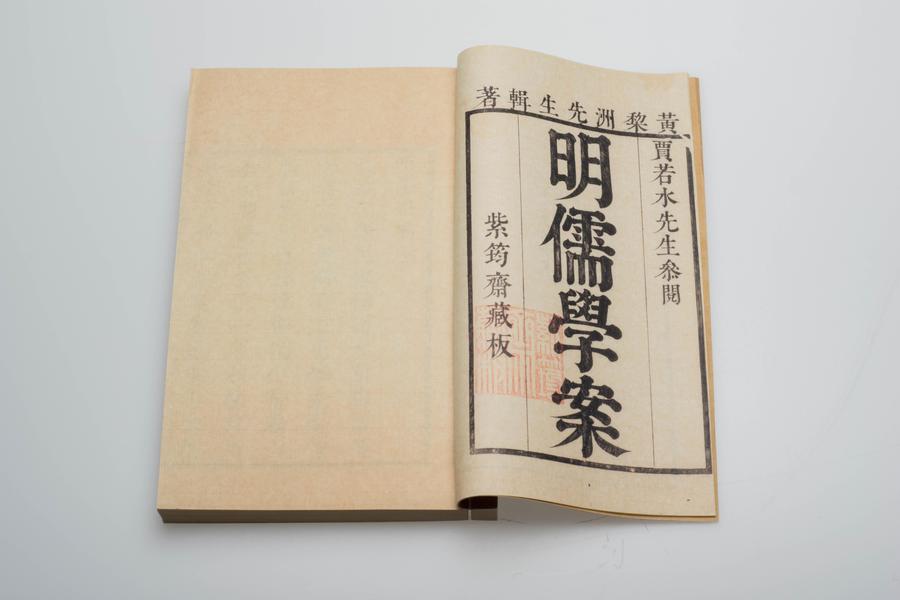 黄棃洲先生輯著
賈若水先生叅閱
明儒學案
紫筠齋藏板